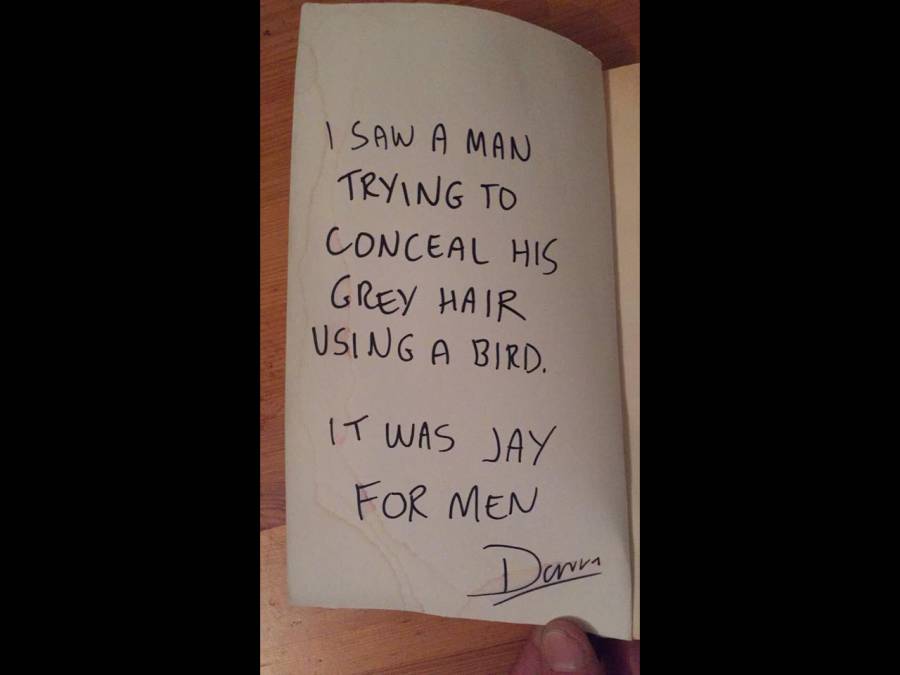 I SAW A MAN
TRYING TO
CONCEAL HIS
GREY HAIR
USING A BIRD.
IT WAS JAY
FOR MEN